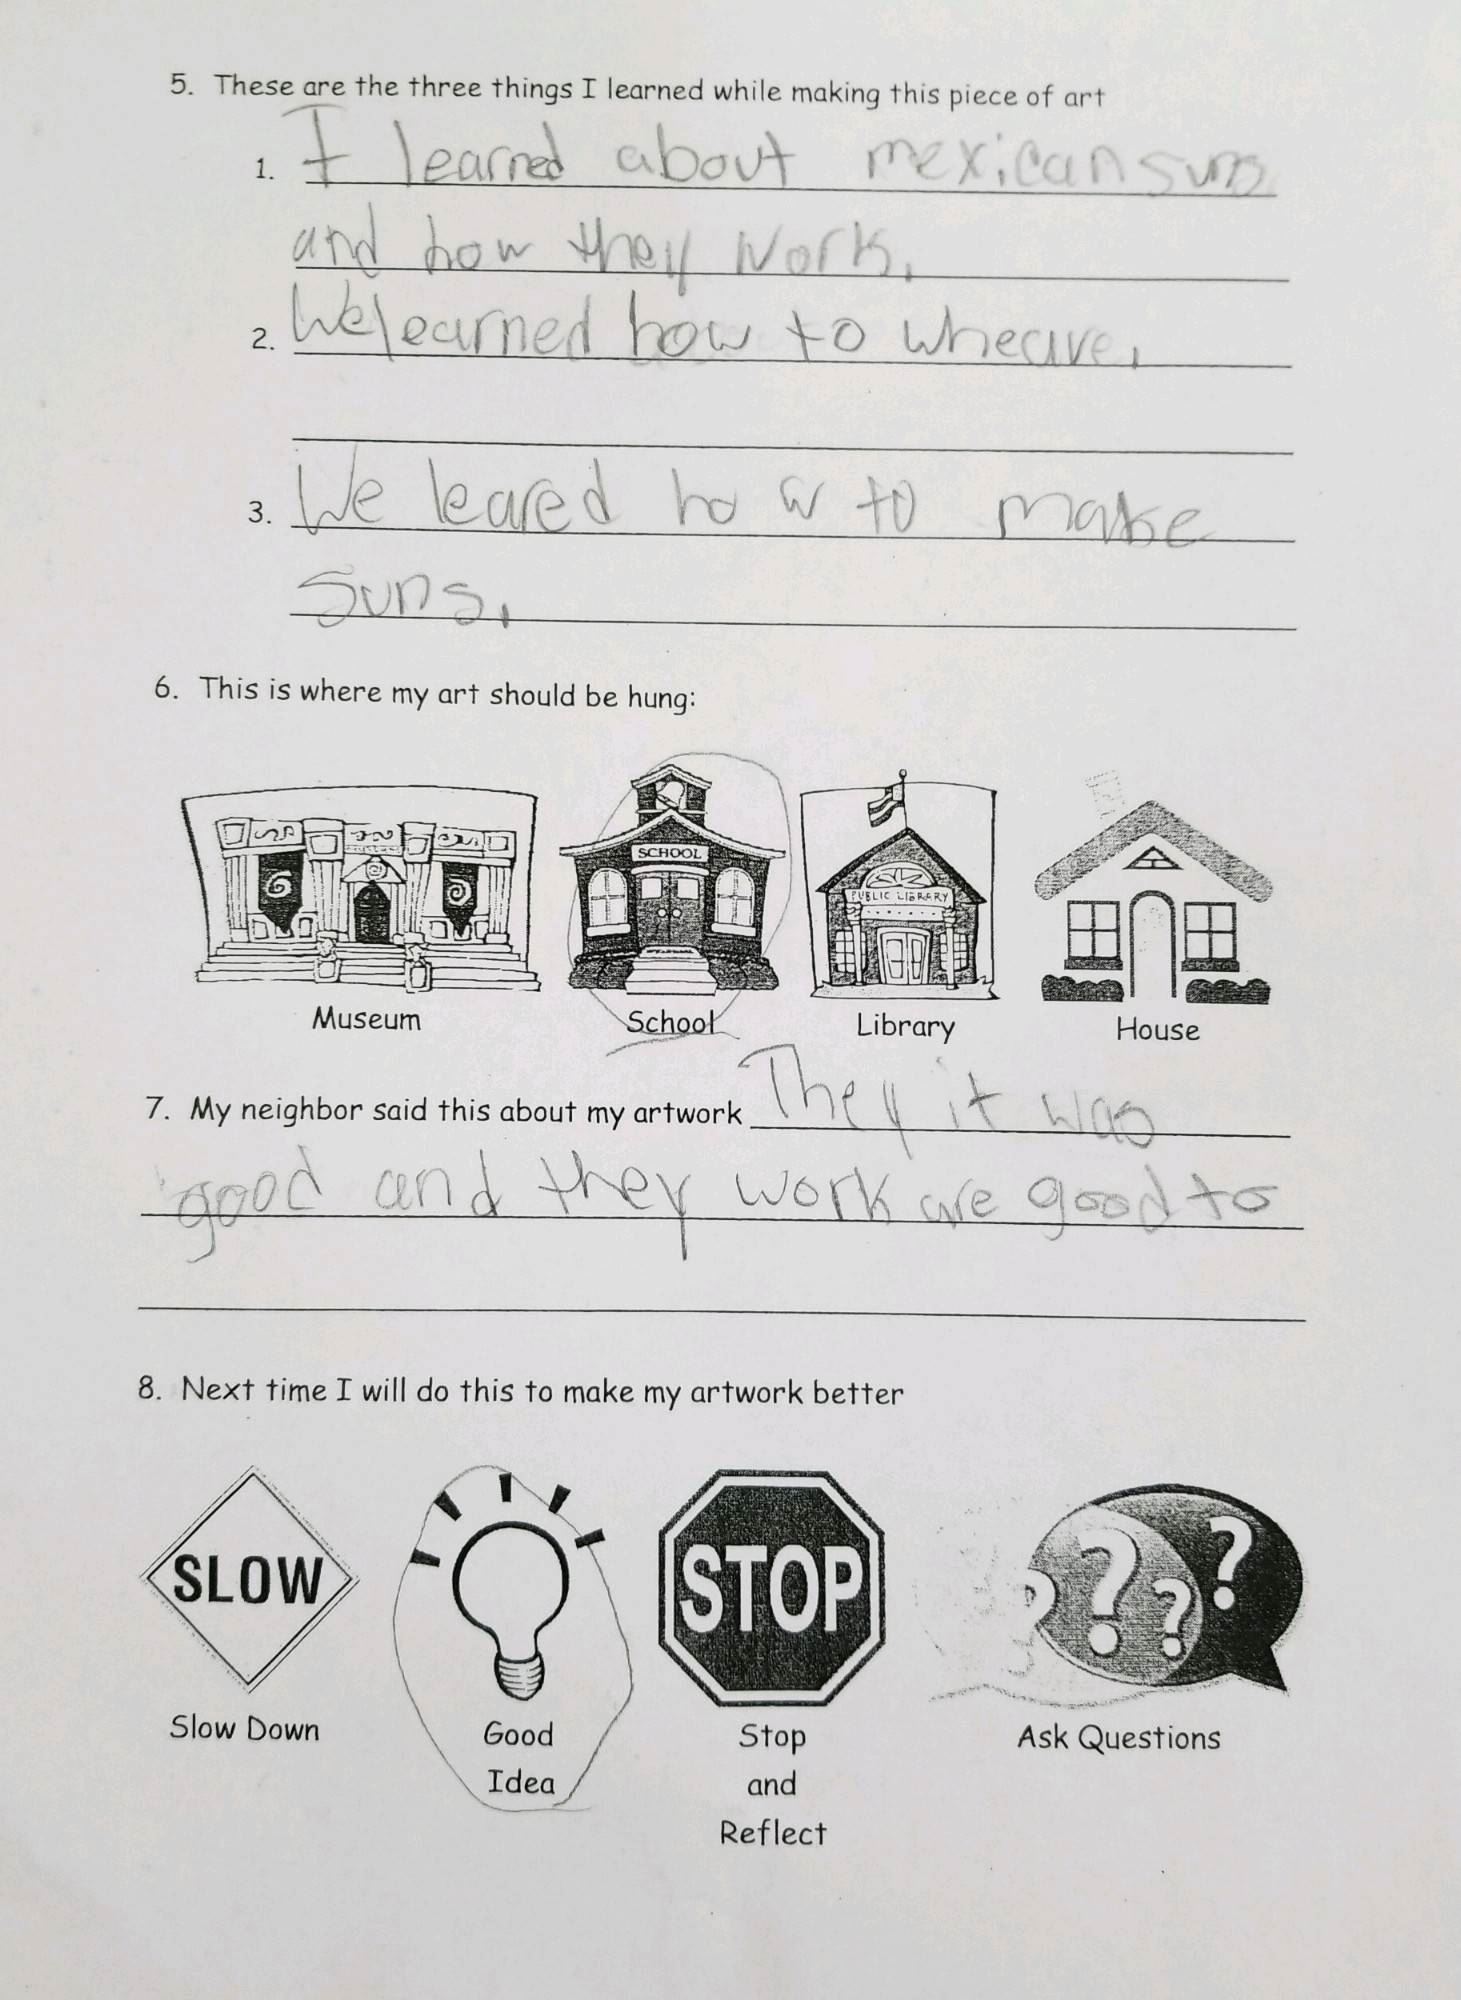 5. These are the three things I learned while making this piece of art
1. I learned about mexican suns
and how they work.
2. We learned how to wheave.
3. We leared how to make
suns.
6. This is where my art should be hung:
SCHOOL
PUBLIC LIBRARY
Museum School Library House
7. My neighbor said this about my artwork They it was
good and they work are good to
8. Next time I will do this to make my artwork better
SLOW STOP ? ? ? ?
Slow Down Good Idea Stop and Reflect Ask Questions